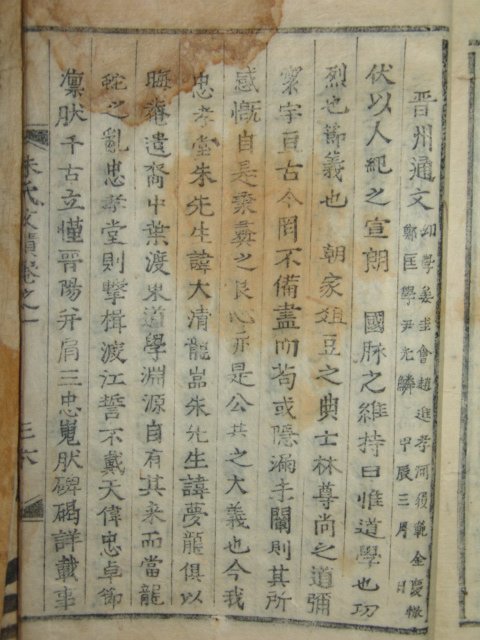 晋州通文 幼學姜圭會趙進孝河獨範金慶轍
鄭匡學尹光鱗 甲辰三月 日
伏以人紀之宣朗 國脉之維持曰惟道學也功
烈也節義也 朝家俎豆之典士林尊尚之道彌
寰宇亘古今罔不備盡而苟或隱漏未闡則其所
感慨自是秉彛之良心亦是公共之大義也今我
忠孝堂朱先生諱大清龍嵓朱先生諱夢龍俱以
晦菴遺裔中葉渡東道學淵源自有其來而當龍
蛇之亂忠孝堂則擊楫渡江誓不戴天偉忠卓節
凛肰千古立慬晋陽并肩三忠嵬肰碑碣詳載事
朱氏文蹟卷之一
三六